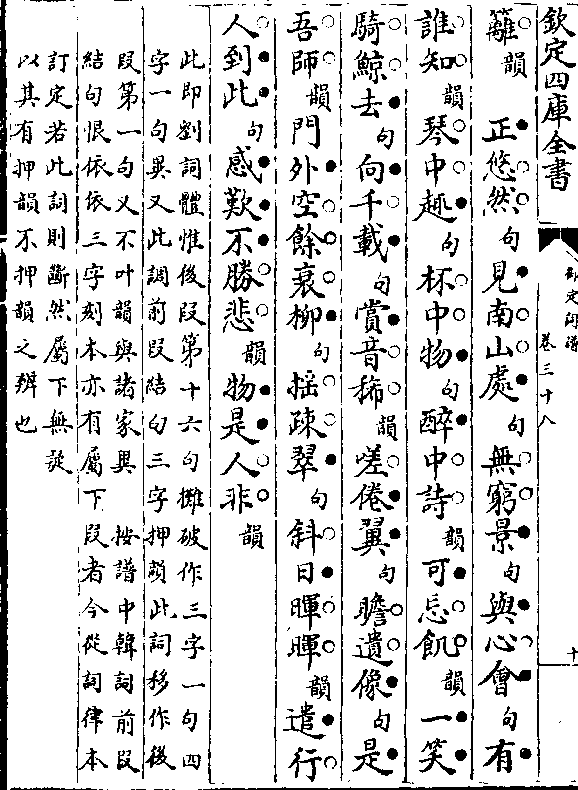 欽定四庫全書
御定詞譜
卷三十八
十
籬韻 正悠然句見南山處句無窮景句與心會句有
誰知韻琴中趣句杯中物句醉中詩韻可忘飢韻一笑
騎鯨去句向千載句賞音稀韻嗟倦翼句瞻遺像句是
吾師韻門外空餘衰柳句揺疎翠句斜日暉暉韻遣行
人到此句感歎不勝悲韻物是人非韻
此即劉詞體惟後段第十六句攤破作三字一句四
字一句異又此調前段結句三字押韻此詞移作後
段第一句又不叶韻與諸家異 按譜中韓詞前段
結句恨依依三字刻本亦有屬下段者今從詞律本
訂定若此詞則斷然屬下無疑
以其有押韻不押韻之辨也